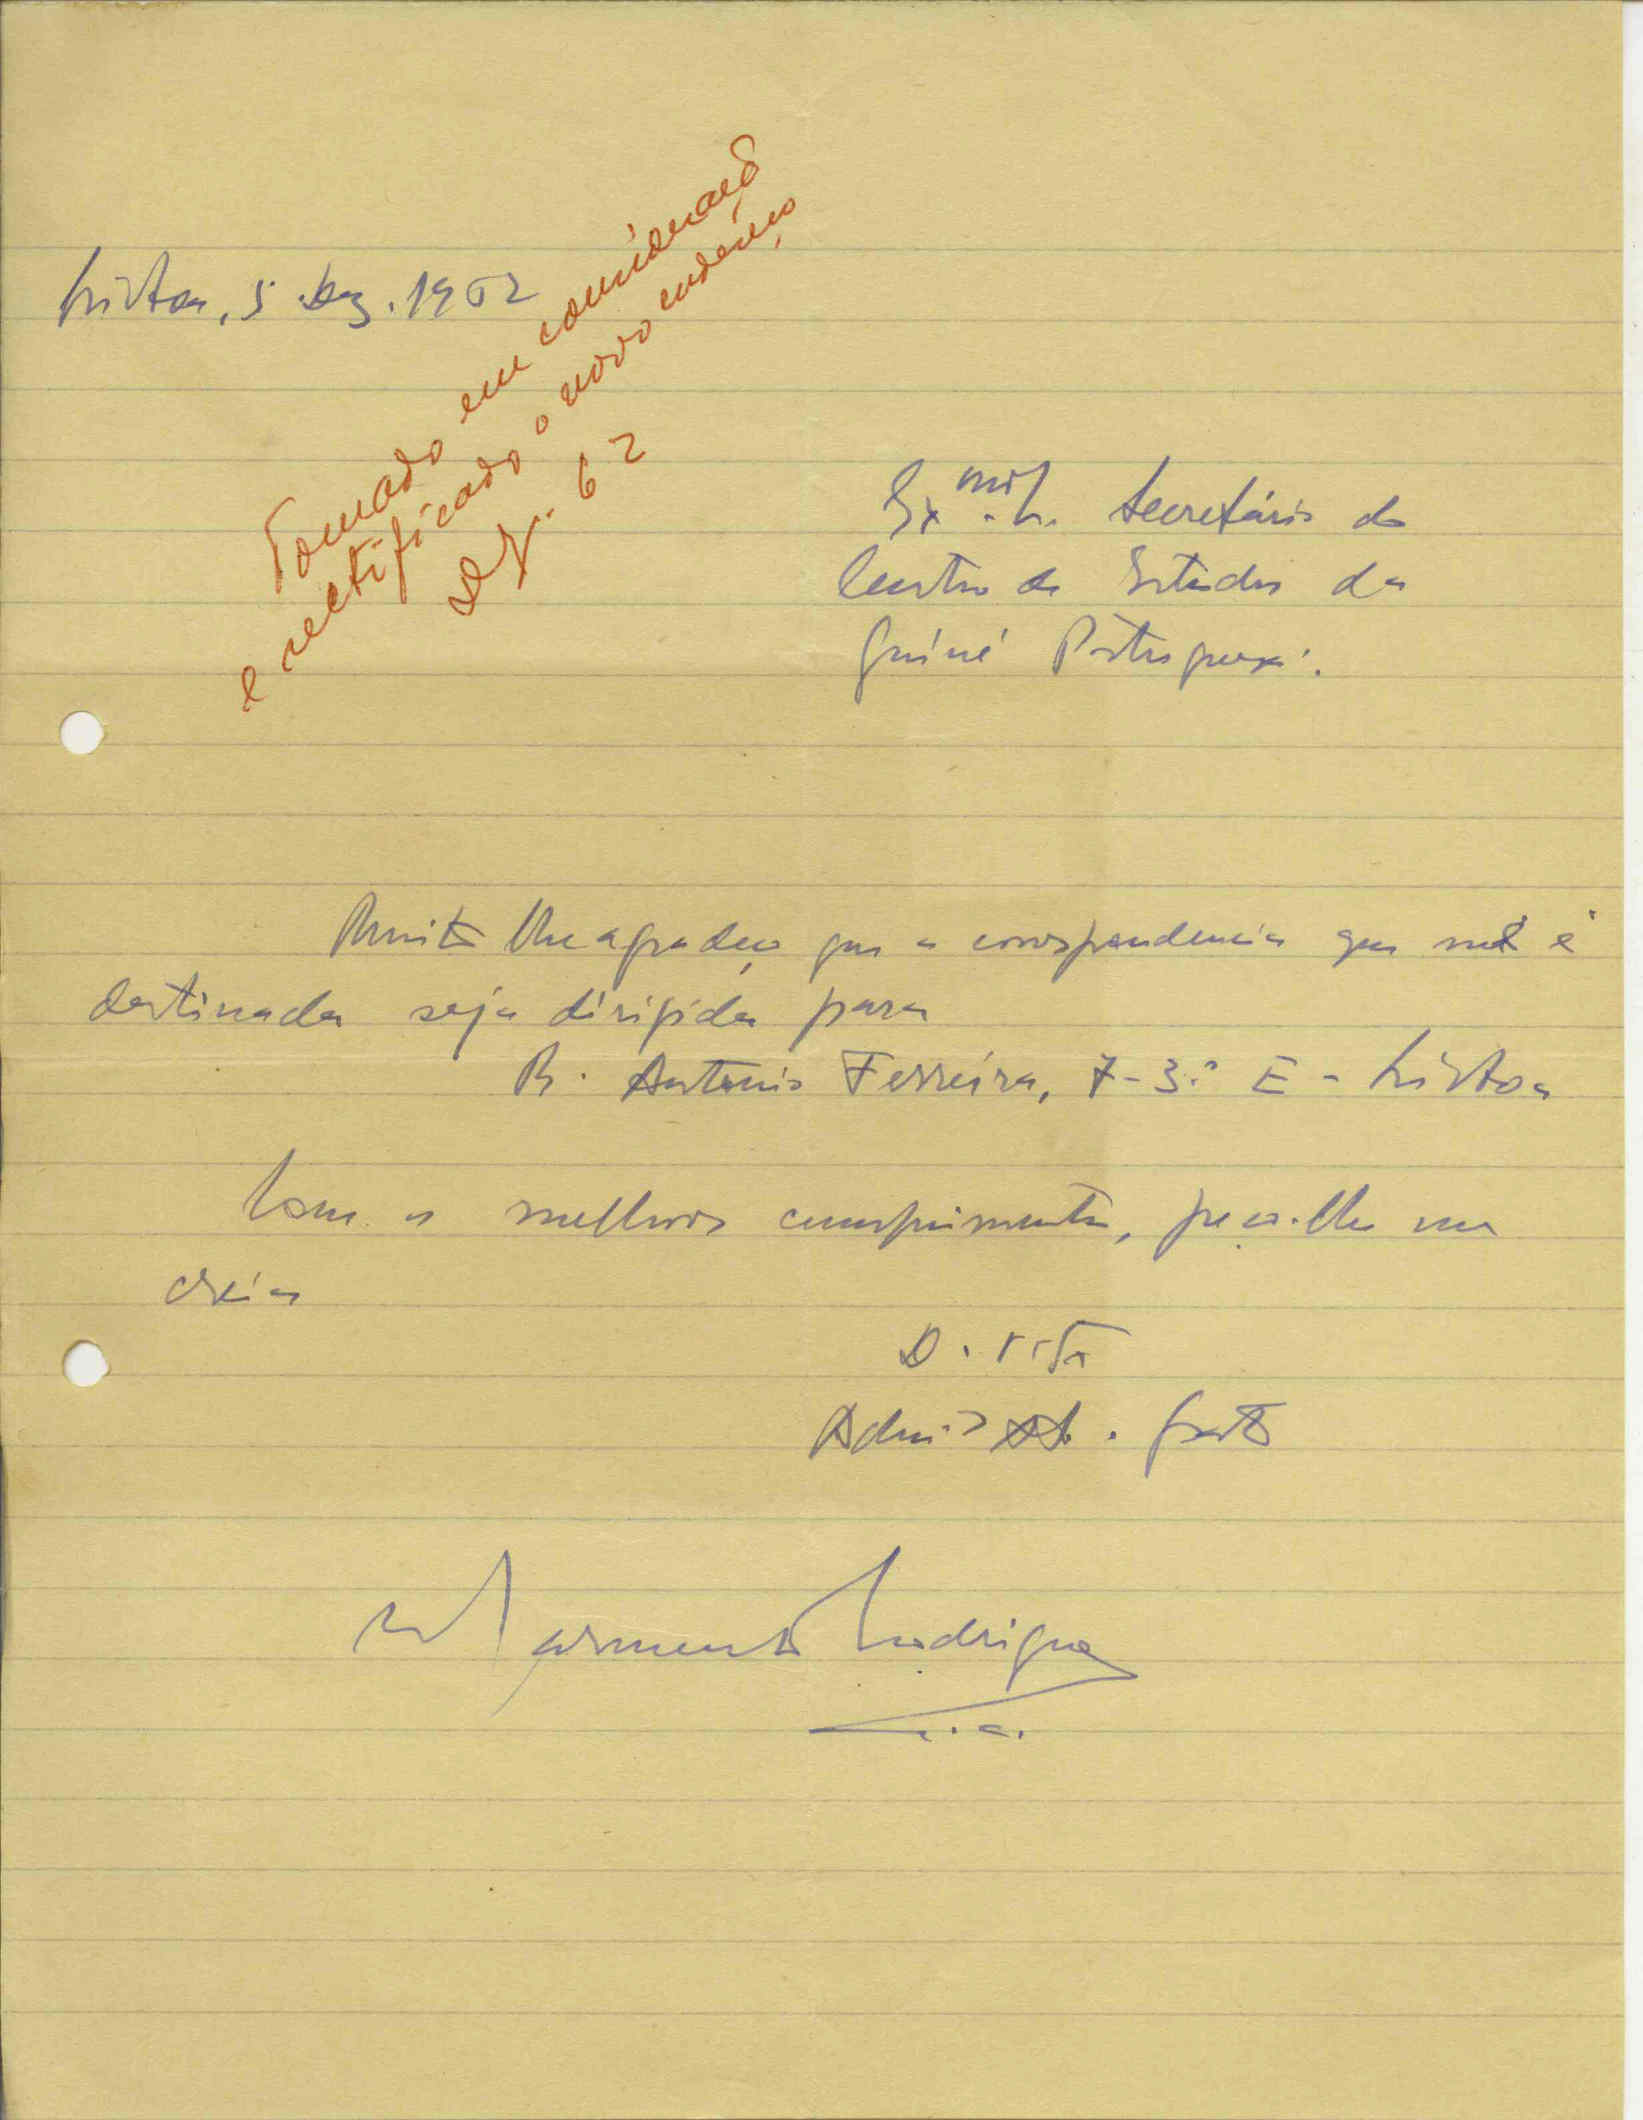 Lisboa, 5 Dez. 1962
Tomado em consideração
e rectificado o novo endereço
Dez. 62
Ex.mo Sr. Secretário do
Centro de Estudos da
Guiné Portuguesa.
Muito lhe agradeço que a correspondencia que me é
destinada seja dirigida para
R. Antonio Ferreira, 7-3.º E - Lisboa
Com os melhores cumprimentos, peço-lhe me
creia
D. V. Ex.a
Adm.or At. e grato
Sarmento Rodrigues